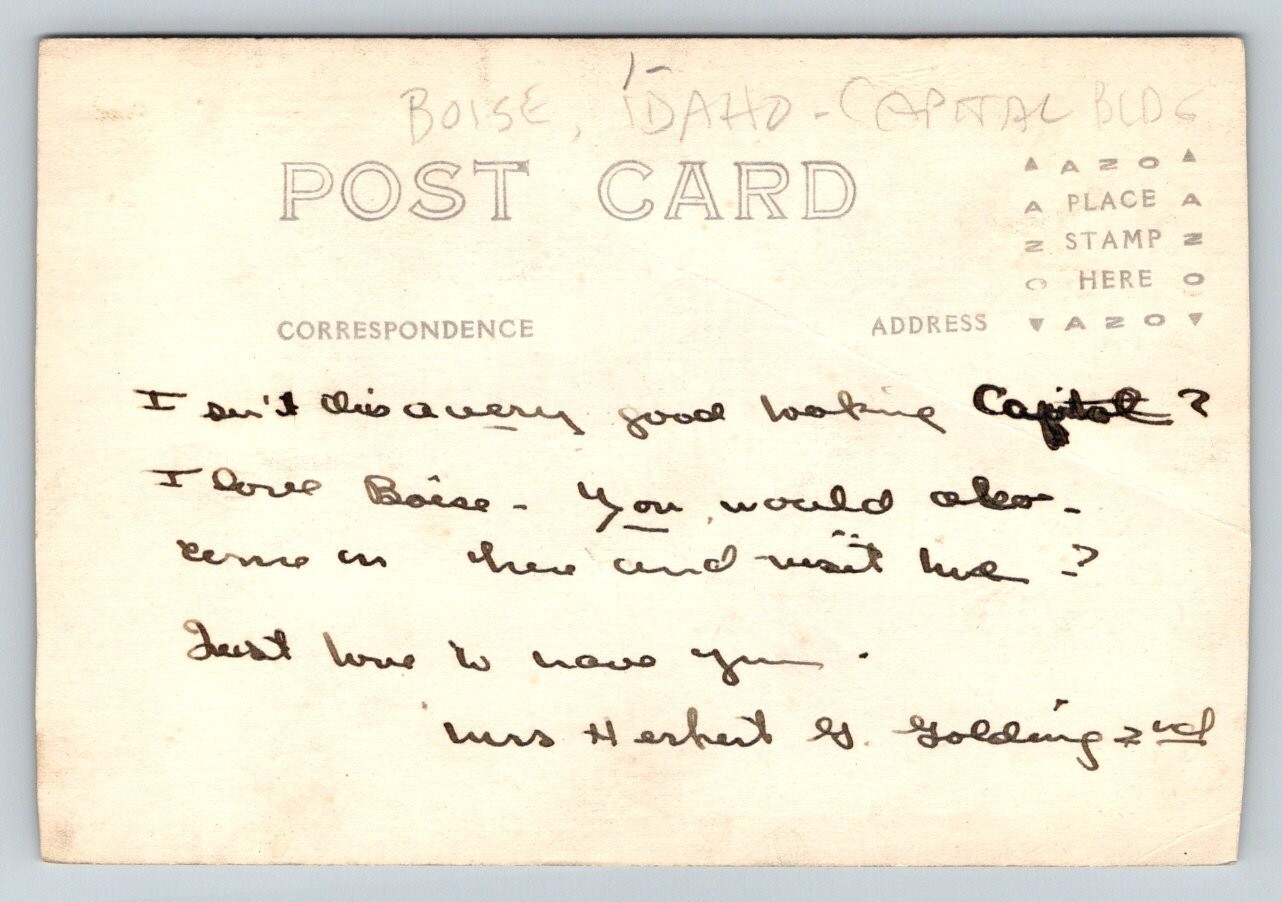 BOISE, IDAHO - CAPITAL BLDG
POST CARD
▲ AZO ▲
A PLACE A
Z STAMP Z
O HERE O
CORRESPONDENCE ADDRESS ▼ AZO ▼
Isn't this a very good looking Capitol?
I love Boise - You would also -
come on here and visit me?
Just love to have you.
Mrs Herbert G. Golding 2nd